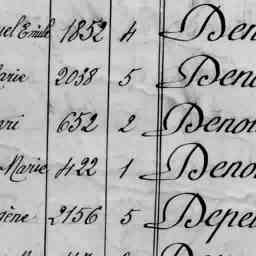 uel Emile 1852 4 Den
arie 2038 5 Den
ari 652 2 Denon
Marie 422 1 Deno
gène 2156 5 Depe